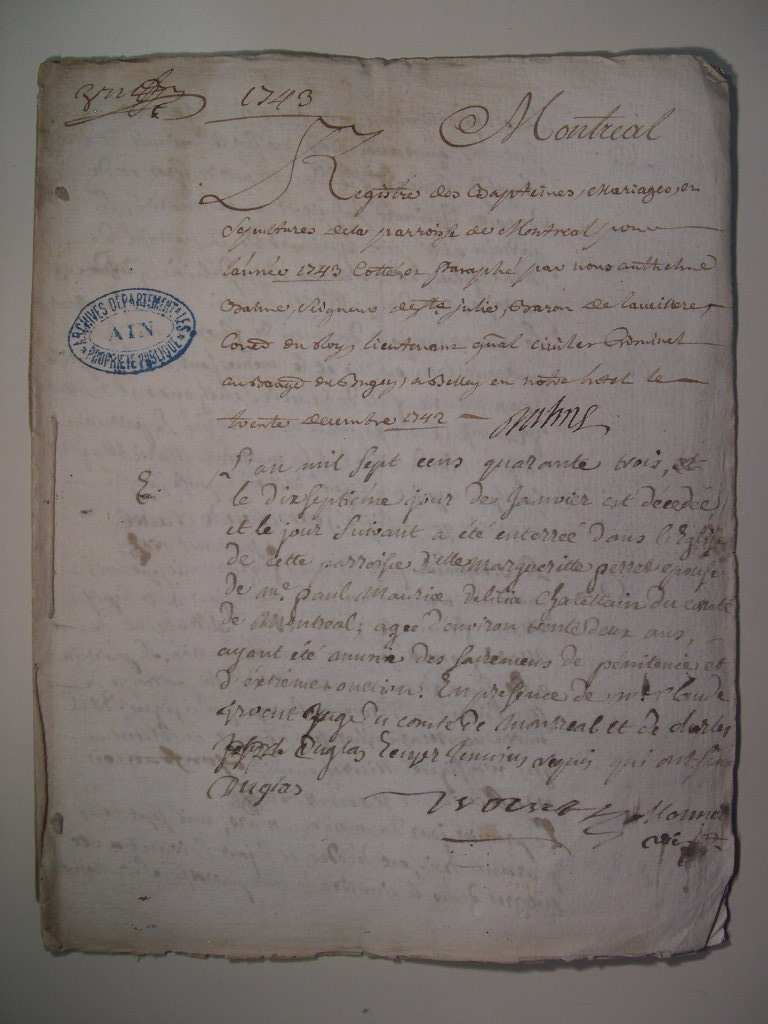 1743
Montreal
Registre des Baptemes, Mariages, et
Sepultures de la parroisse de Montreal pour
l'année 1743 Cotté et Paraphé par nous anthelme
Balme Seigneur de Ste julie, Baron de
du Roy, lieutenant civil et Criminel
au du Bugey, a Belley en notre hotel le
trente decembre 1742
Balme
ARCHIVES DÉPARTEMENTALES
AIN
PROPRIÉTÉ PUBLIQUE
L'an mil sept cens quarante trois, et
le dixseptiéme jour de Janvier est decedée
et le jour suivant a été enterreé dans l'Eglise
de cette parroisse Margueritte perret epouse
de mr. Paul Maurice Delilia Chatellain du comté
de Montreal; ageé d'environ trente deux ans,
ayant été munie des sacremens de pénitence et
d'éxtréme-onction. En presence de mr. Claude
juge du comté de Montreal et de charles
joseph Duglas Ecuyer temoins requis qui ont signé
Duglas